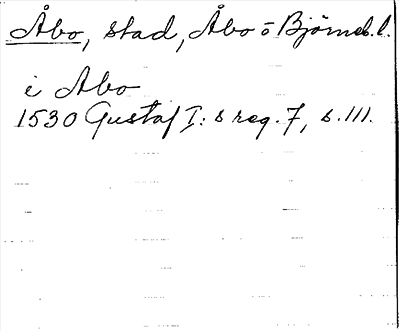 Åbo, stad, Åbo o Björneb. l.
i Abo
1530 Gustaf I:s reg. 7, s. 111.